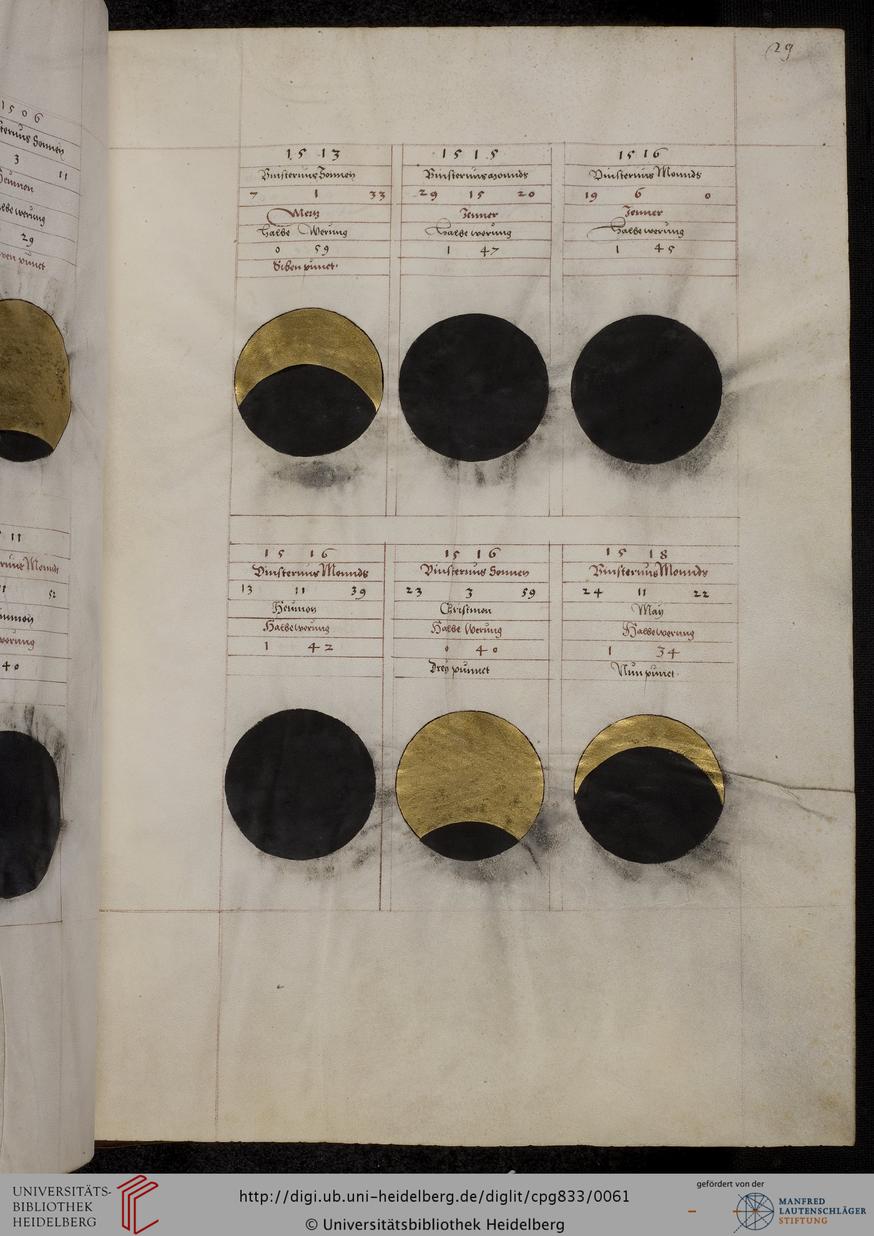 29
1506
3
11
29
1513
Vinsternus Sonnen
7 1 33
Mertz
Halbe Werung
0 59
Siben punct
1515
Vinsternus Mounds
29 15 20
Jenner
Halbe werung
1 47
1516
Vinsternus Mounds
19 6 0
Jenner
Halbe werung
1 45
11
52
40
1516
Vinsternus Mounds
13 11 39
Heumon
Halbe werung
1 42
1516
Vinsternus Sonnen
23 3 59
Cristmon
Halbe Werung
0 40
Drey punnct
1518
Vinsternus Mounds
24 11 22
May
Halbe werung
1 34
Nun punct
UNIVERSITÄTS-
BIBLIOTHEK
HEIDELBERG
http://digi.ub.uni-heidelberg.de/diglit/cpg833/0061
© Universitätsbibliothek Heidelberg
gefördert von der
MANFRED
LAUTENSCHLÄGER
STIFTUNG